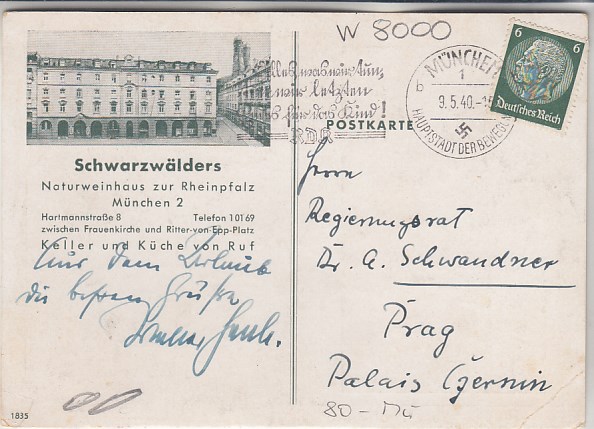 W 8000
MÜNCHEN
1
b
9.5.40.-15
HAUPTSTADT DER BEWEGUNG
6 6
Deutsches Reich
Alles, was wir tun,
tun wir letzten
für das Kind!
RDK
POSTKARTE
Schwarzwälders
Naturweinhaus zur Rheinpfalz
München 2
Hartmannstraße 8 Telefon 10169
zwischen Frauenkirche und Ritter-von-Epp-Platz
Keller und Küche von Ruf
Aus dem Urlaub
die besten Grüße
Herrn
Regierungsrat
Dr. A. Schwandner
Prag
Palais Czernin
80 - Mü
1835